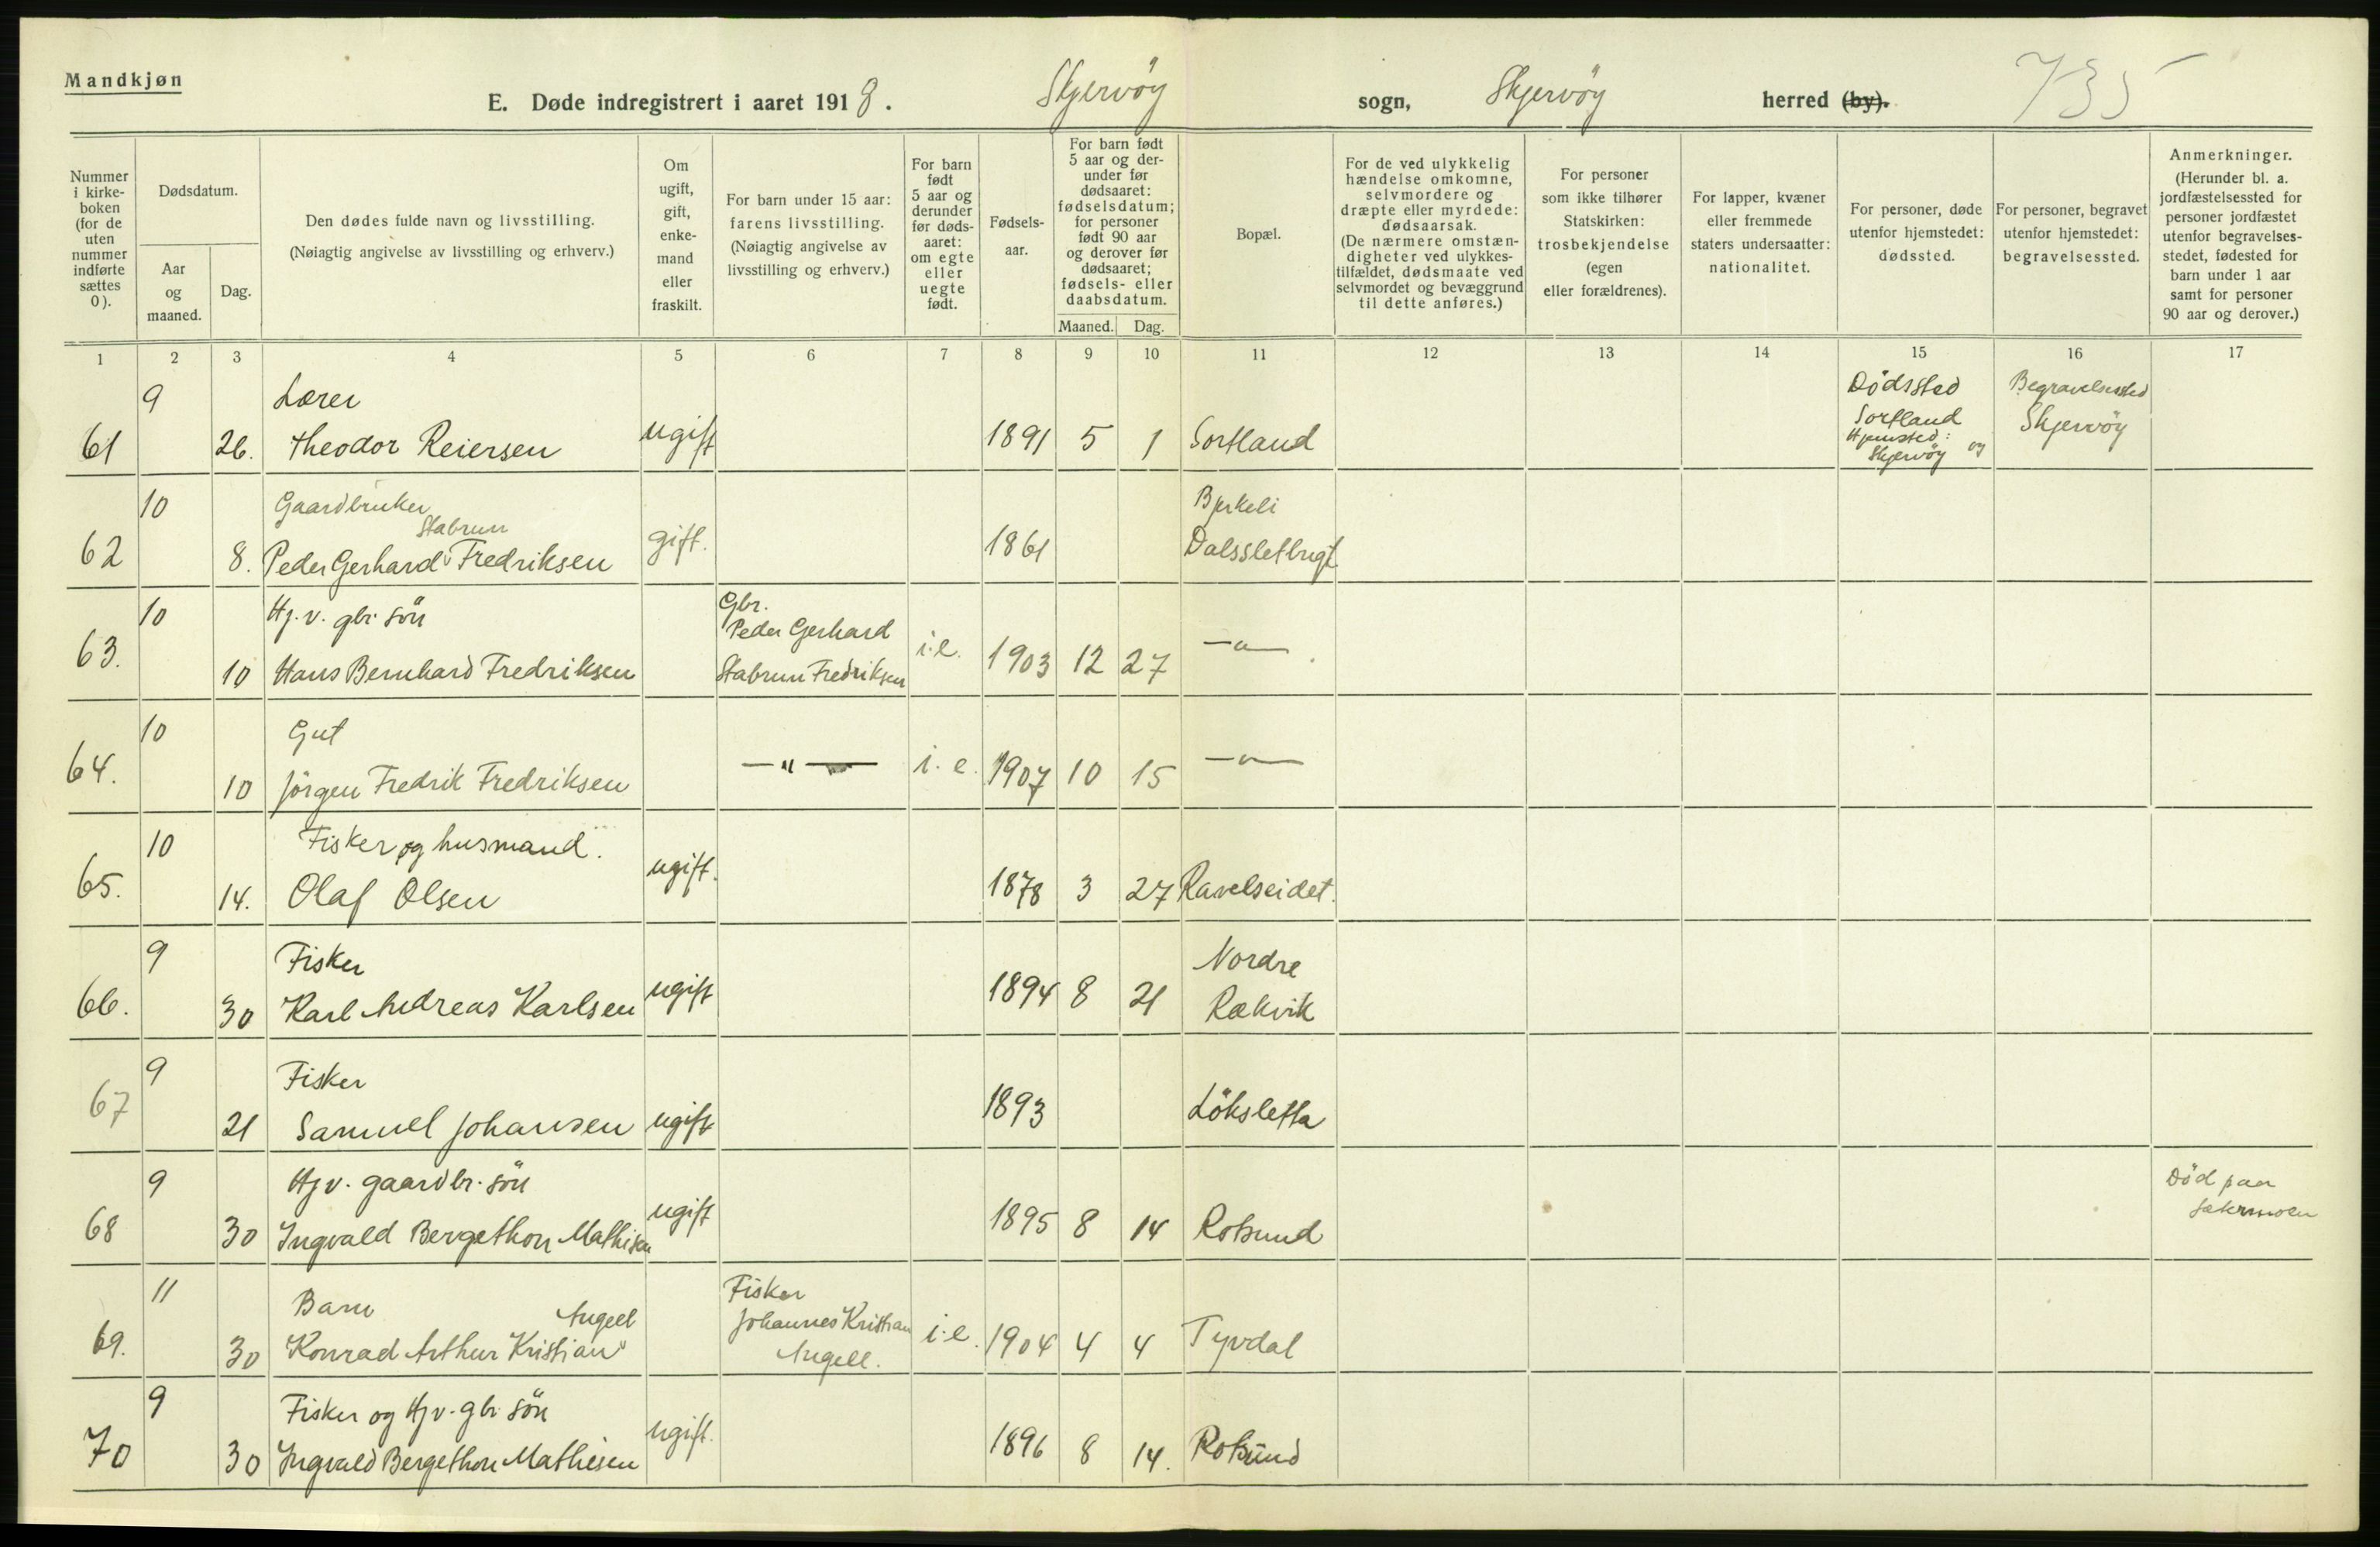 Mandkjøn
E. Døde indregistrert i aaret 1918. Skjervöy sogn, Skjervöy herred (by). 735
Nummer i kirke-boken (for de uten nummer indførte sættes 0).
Dødsdatum.
Aar og maaned.
Dag.
Den dødes fulde navn og livsstilling.
(Nøiagtig angivelse av livsstilling og erhverv.)
Om ugift, gift, enke-mand eller fraskilt.
For barn under 15 aar: farens livsstilling. (Nøiagtig angivelse av livsstilling og erhverv.)
For barn født 5 aar og derunder før døds-aaret: om egte eller uegte født.
Fødsels-aar.
For barn født 5 aar og der-under før dødsaaret: fødselsdatum; for personer født 90 aar og derover før dødsaaret; fødsels- eller daabsdatum.
Maaned. Dag.
Bopæl.
For de ved ulykkelig hændelse omkomne, selvmordere og dræpte eller myrdede: dødsaarsak. (De nærmere omstæn-digheter ved ulykkes-tilfældet, dødsmaate ved selvmordet og bevæggrund til dette anføres.)
For personer som ikke tilhører Statskirken: trosbekjendelse (egen eller forældrenes).
For lapper, kvæner eller fremmede staters undersaatter: nationalitet.
For personer, døde utenfor hjemstedet: dødssted.
For personer, begravet utenfor hjemstedet: begravelsessted.
Anmerkninger. (Herunder bl. a. jordfæstelsessted for personer jordfæstet utenfor begravelses-stedet, fødested for barn under 1 aar samt for personer 90 aar og derover.)
1 2 3 4 5 6 7 8 9 10 11 12 13 14 15 16 17
9 Lærer Dödssted Begravelsessted
61 26. Theodor Reiersen ugift 1891 5 1 Sortland Sortland Skjervöy
Hjemsted: og
Skjervöy
10 Gaardbruker Stabrun Bjerkeli
62 8. Peder Gerhard Fredriksen gift. 1861 Dalssletbugt
10 Hj. v. gbr. sön Gbr. Peder Gerhard
63. 10 Hans Bernhard Fredriksen Stabrun Fredriksen i.e. 1903 12 27 —"—
10 Gut
64. 10 Jörgen Fredrik Fredriksen —"— i. e. 1907 10 15 —"—
10 Fisker og husmand.
65. 14. Olaf Olsen ugift. 1878 3 27 Ravelseidet.
9 Fisker Nordre
66. 30 Karl Andreas Karlsen ugift 1894 8 21 Rækvik
9 Fisker
67 21 Samuel Johansen ugift 1893 Löksletta
9 Hjv. gaardbr. sön Död paa
68 30 Ingvald Bergethon Mathisen ugift 1895 8 14 Rotsund
11 Barn Angell Fisker
69. 30 Konrad Arthur Kristian Johannes Kristian Angell. i.e. 1904 4 4 Tyvdal
9 Fisker og Hjv. gbr. sön
70 30 Ingvald Bergethon Mathisen ugift. 1896 8 14. Rotsund